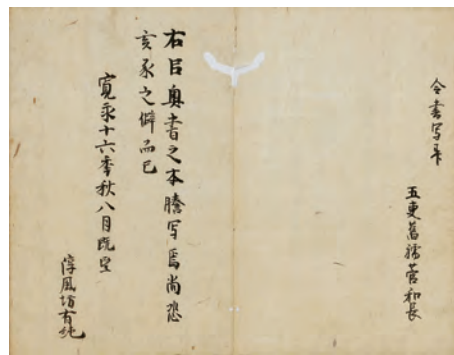 令書写畢
五更舊儒菅和長
右㠯奥書之本謄写焉尚恐
亥豕之僻而已
寛永十六季秋八月既望
淳風坊有純